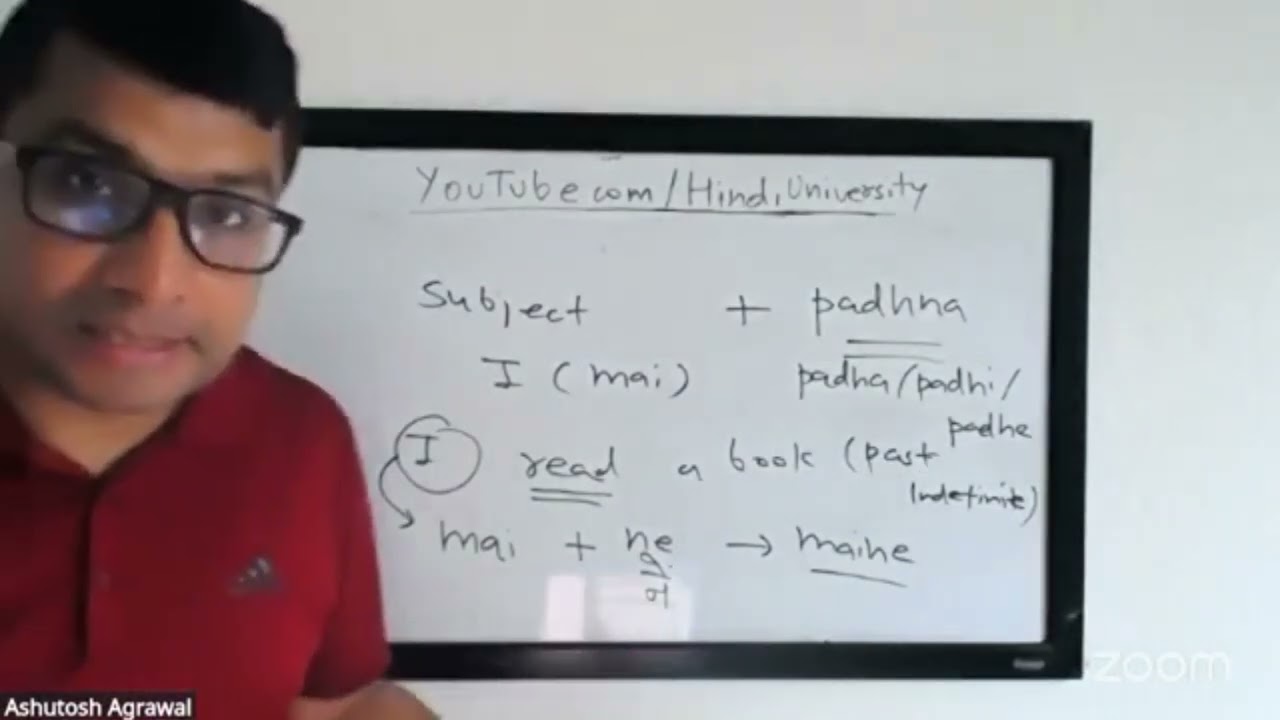 YouTube.com/HindiUniversity
Subject + padhna
I (mai) padha/padhi/
padhe
I read a book (past
Indefinite)
mai + ne → maine
ने
zoom
Ashutosh Agrawal